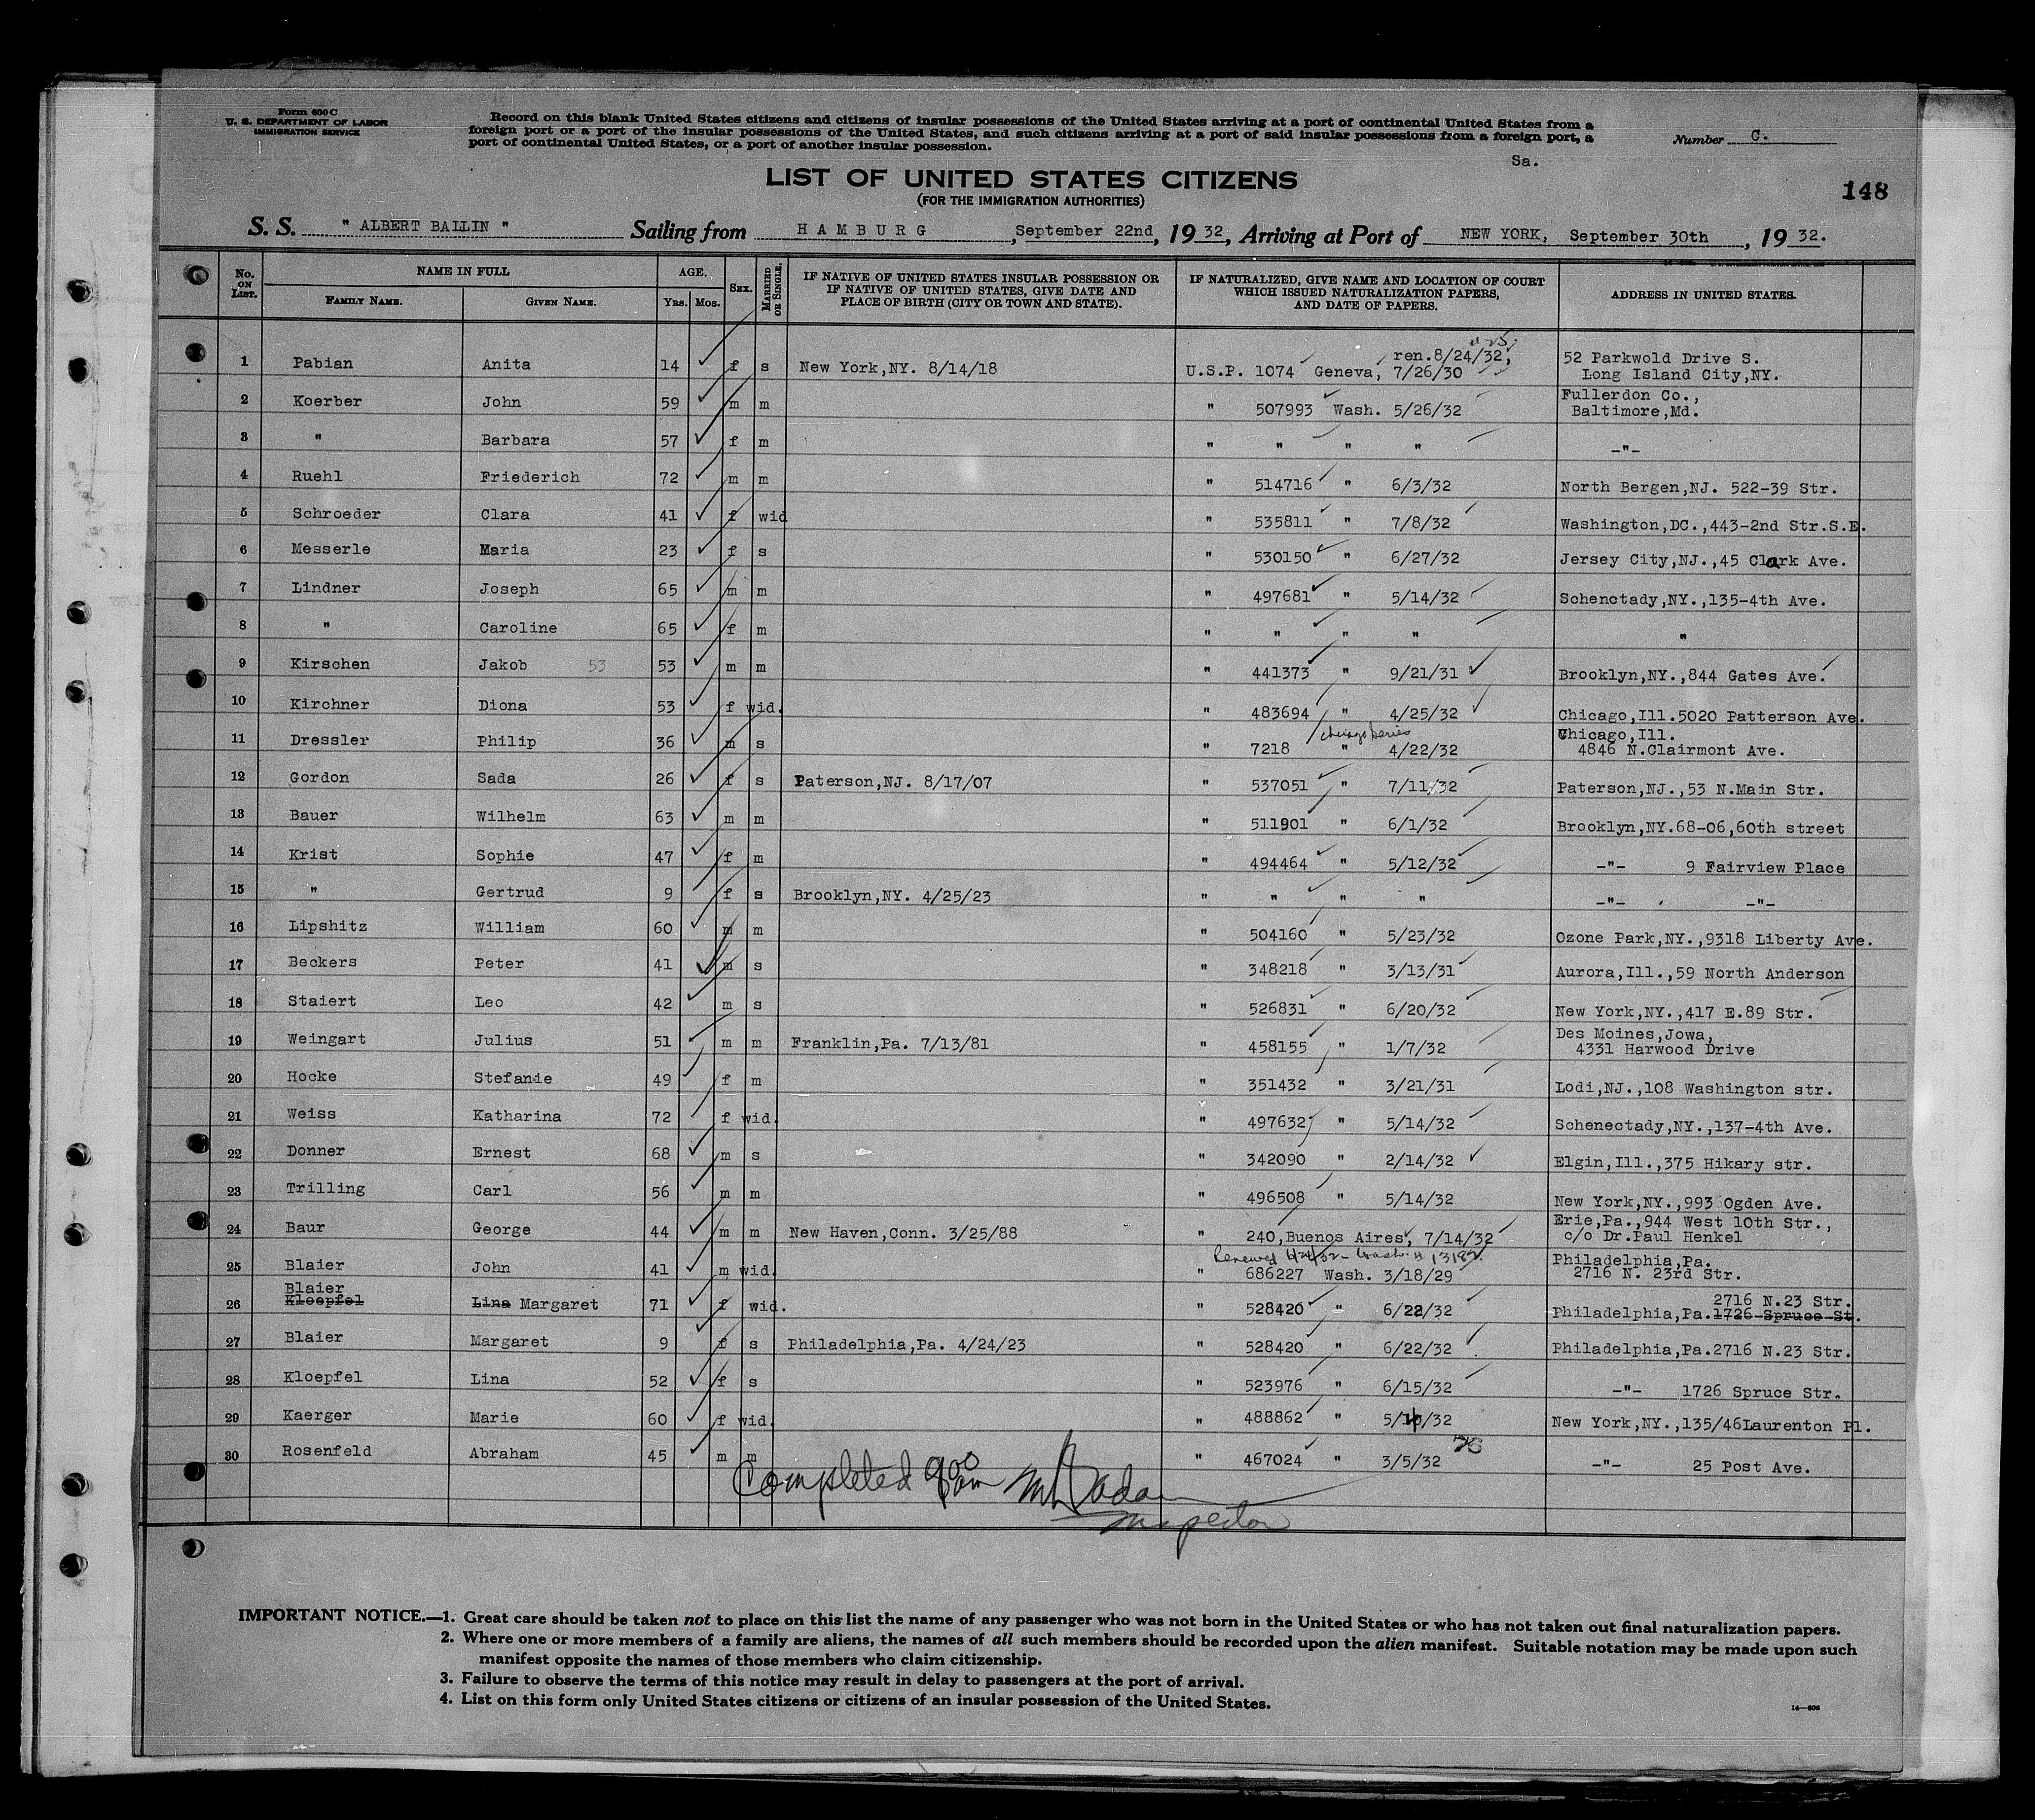 Form 630 C
U. S. DEPARTMENT OF LABOR
IMMIGRATION SERVICE
Record on this blank United States citizens and citizens of insular possessions of the United States arriving at a port of continental United States from a
foreign port or a port of the insular possessions of the United States, and such citizens arriving at a port of said insular possessions from a foreign port, a
port of continental United States, or a port of another insular possession.
Number C.
Sa.
LIST OF UNITED STATES CITIZENS
(FOR THE IMMIGRATION AUTHORITIES)
148
S. S. " ALBERT BALLIN " Sailing from HAMBURG, September 22nd, 1932, Arriving at Port of NEW YORK, September 30th, 1932.
No. ON LIST. NAME IN FULL FAMILY NAME. GIVEN NAME. AGE. Yrs. Mos. SEX. MARRIED OR SINGLE. IF NATIVE OF UNITED STATES INSULAR POSSESSION OR IF NATIVE OF UNITED STATES, GIVE DATE AND PLACE OF BIRTH (CITY OR TOWN AND STATE). IF NATURALIZED, GIVE NAME AND LOCATION OF COURT WHICH ISSUED NATURALIZATION PAPERS, AND DATE OF PAPERS. ADDRESS IN UNITED STATES.
1 Pabian Anita 14 f s New York,NY. 8/14/18 U.S.P. 1074 Geneva, 7/26/30 ren.8/24/32, 52 Parkwold Drive S. Long Island City,NY.
2 Koerber John 59 m m " 507993 Wash. 5/26/32 Fullerdon Co., Baltimore,Md.
3 " Barbara 57 f m " " " " -"-
4 Ruehl Friederich 72 m m " 514716 " 6/3/32 North Bergen,NJ. 522-39 Str.
5 Schroeder Clara 41 f wid " 535811 " 7/8/32 Washington,DC.,443-2nd Str.S.E.
6 Messerle Maria 23 f s " 530150 " 6/27/32 Jersey City,NJ.,45 Clark Ave.
7 Lindner Joseph 65 m m " 497681 " 5/14/32 Schenctady,NY.,135-4th Ave.
8 " Caroline 65 f m " " " " "
9 Kirschen Jakob 53 53 m m " 441373 " 9/21/31 Brooklyn,NY.,844 Gates Ave.
10 Kirchner Diona 53 f wid. " 483694 " 4/25/32 Chicago,Ill.5020 Patterson Ave.
11 Dressler Philip 36 m s " 7218 Chicago Series " 4/22/32 Chicago,Ill. 4846 N.Clairmont Ave.
12 Gordon Sada 26 f s Paterson,NJ. 8/17/07 " 537051 " 7/11/32 Paterson,NJ.,53 N.Main Str.
13 Bauer Wilhelm 63 m m " 511901 " 6/1/32 Brooklyn,NY.68-06,60th street
14 Krist Sophie 47 f m " 494464 " 5/12/32 -"- 9 Fairview Place
15 " Gertrud 9 f s Brooklyn,NY. 4/25/23 " " " " -"- -"-
16 Lipshitz William 60 m m " 504160 " 5/23/32 Ozone Park,NY.,9318 Liberty Ave.
17 Beckers Peter 41 m s " 348218 " 3/13/31 Aurora,Ill.,59 North Anderson
18 Staiert Leo 42 m s " 526831 " 6/20/32 New York,NY.,417 E.89 Str.
19 Weingart Julius 51 m m Franklin,Pa. 7/13/81 " 458155 " 1/7/32 Des Moines,Jowa, 4331 Harwood Drive
20 Hocke Stefanie 49 f m " 351432 " 3/21/31 Lodi,NJ.,108 Washington str.
21 Weiss Katharina 72 f wid. " 497632 " 5/14/32 Schenectady,NY.,137-4th Ave.
22 Donner Ernest 68 m s " 342090 " 2/14/32 Elgin,Ill.,375 Hikary str.
23 Trilling Carl 56 m m " 496508 " 5/14/32 New York,NY.,993 Ogden Ave.
24 Baur George 44 m m New Haven,Conn. 3/25/88 " 240,Buenos Aires, 7/14/32 Erie,Pa.,944 West 10th Str., c/o Dr.Paul Henkel
25 Blaier John 41 m wid. Renewed " 686227 Wash. 3/18/29 Philadelphia,Pa. 2716 N. 23rd Str.
26 Blaier Kloepfel Lina Margaret 71 f wid. " 528420 " 6/22/32 2716 N.23 Str. Philadelphia,Pa.1726 Spruce St.
27 Blaier Margaret 9 f s Philadelphia,Pa. 4/24/23 " 528420 " 6/22/32 Philadelphia,Pa.2716 N.23 Str.
28 Kloepfel Lina 52 f s " 523976 " 6/15/32 -"- 1726 Spruce Str.
29 Kaerger Marie 60 f wid. " 488862 " New York,NY.,135/46Laurenton Pl.
30 Rosenfeld Abraham 45 m m " 467024 " 3/5/32 -"- 25 Post Ave.
Completed 9 00 am
Inspector
IMPORTANT NOTICE.—1. Great care should be taken not to place on this list the name of any passenger who was not born in the United States or who has not taken out final naturalization papers.
2. Where one or more members of a family are aliens, the names of all such members should be recorded upon the alien manifest. Suitable notation may be made upon such
manifest opposite the names of those members who claim citizenship.
3. Failure to observe the terms of this notice may result in delay to passengers at the port of arrival.
4. List on this form only United States citizens or citizens of an insular possession of the United States.